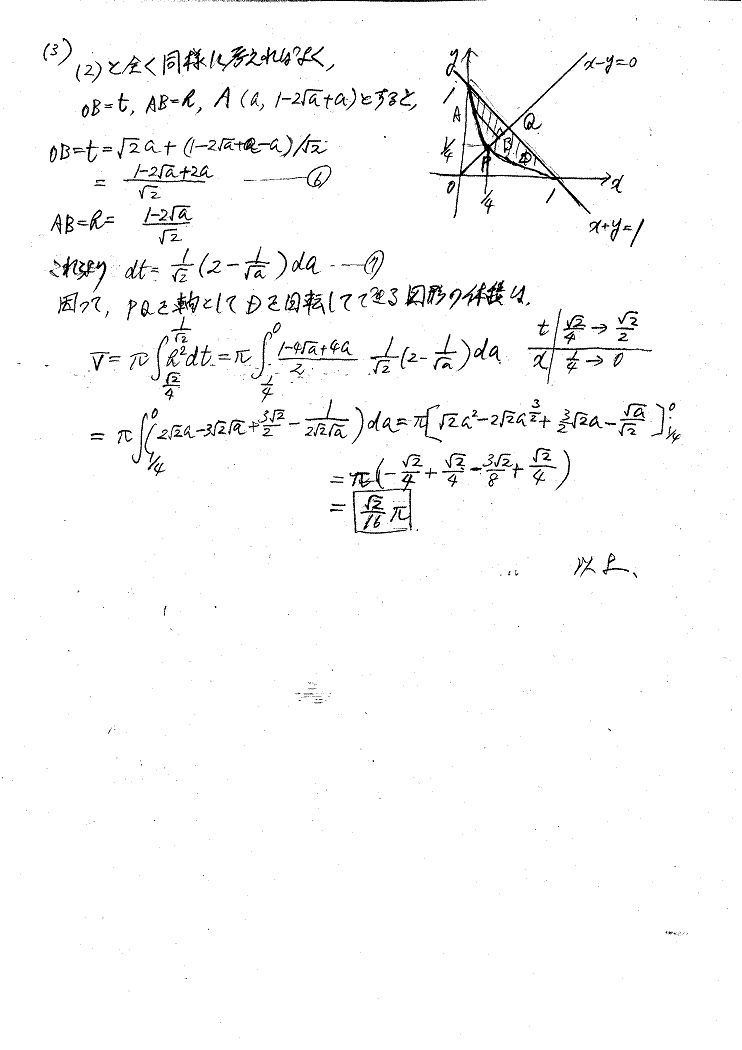 (3)
(2)と全く同様に考えればよく,
OB=t, AB=R, A(a, 1-2√a+a)とすると,
OB=t=√2a+(1-2√a+a-a)/√2
= (1-2√a+2a)/√2 ――⑥
AB=R= (1-2√a)/√2
これより dt= 1/√2 (2-1/√a)da ―⑦
因って, PQを軸としてDを回転してできる図形の体積は,
V=π∫_{√2/4}^{1/√2} R²dt=π∫_{1/4}^{0} (1-4√a+4a)/2 1/√2 (2-1/√a)da
t | √2/4 → √2/2
x | 1/4 → 0
=π∫_{1/4}^{0} (2√2a-3√2√a+3√2/2-1/(2√2√a))da=π[√2a²-2√2a^{3/2}+3/2√2a-√a/√2]_{1/4}^{0}
=π(-√2/4+√2/4-3√2/8+√2/4)
= √2/16 π
以上、
y
1
A
1/4
0
P
B
D
Q
1/4
1
x
x-y=0
x+y=1